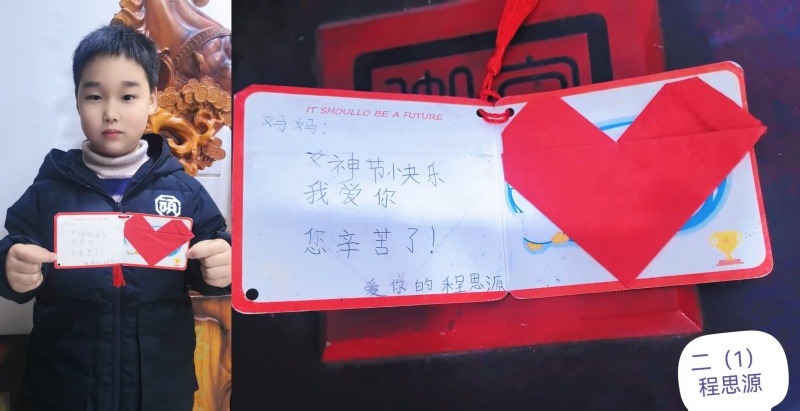 IT SHOULLO BE A FUTURE
妈妈：
女神节快乐
我爱你
您辛苦了！
爱你的程思源
二（1）
程思源